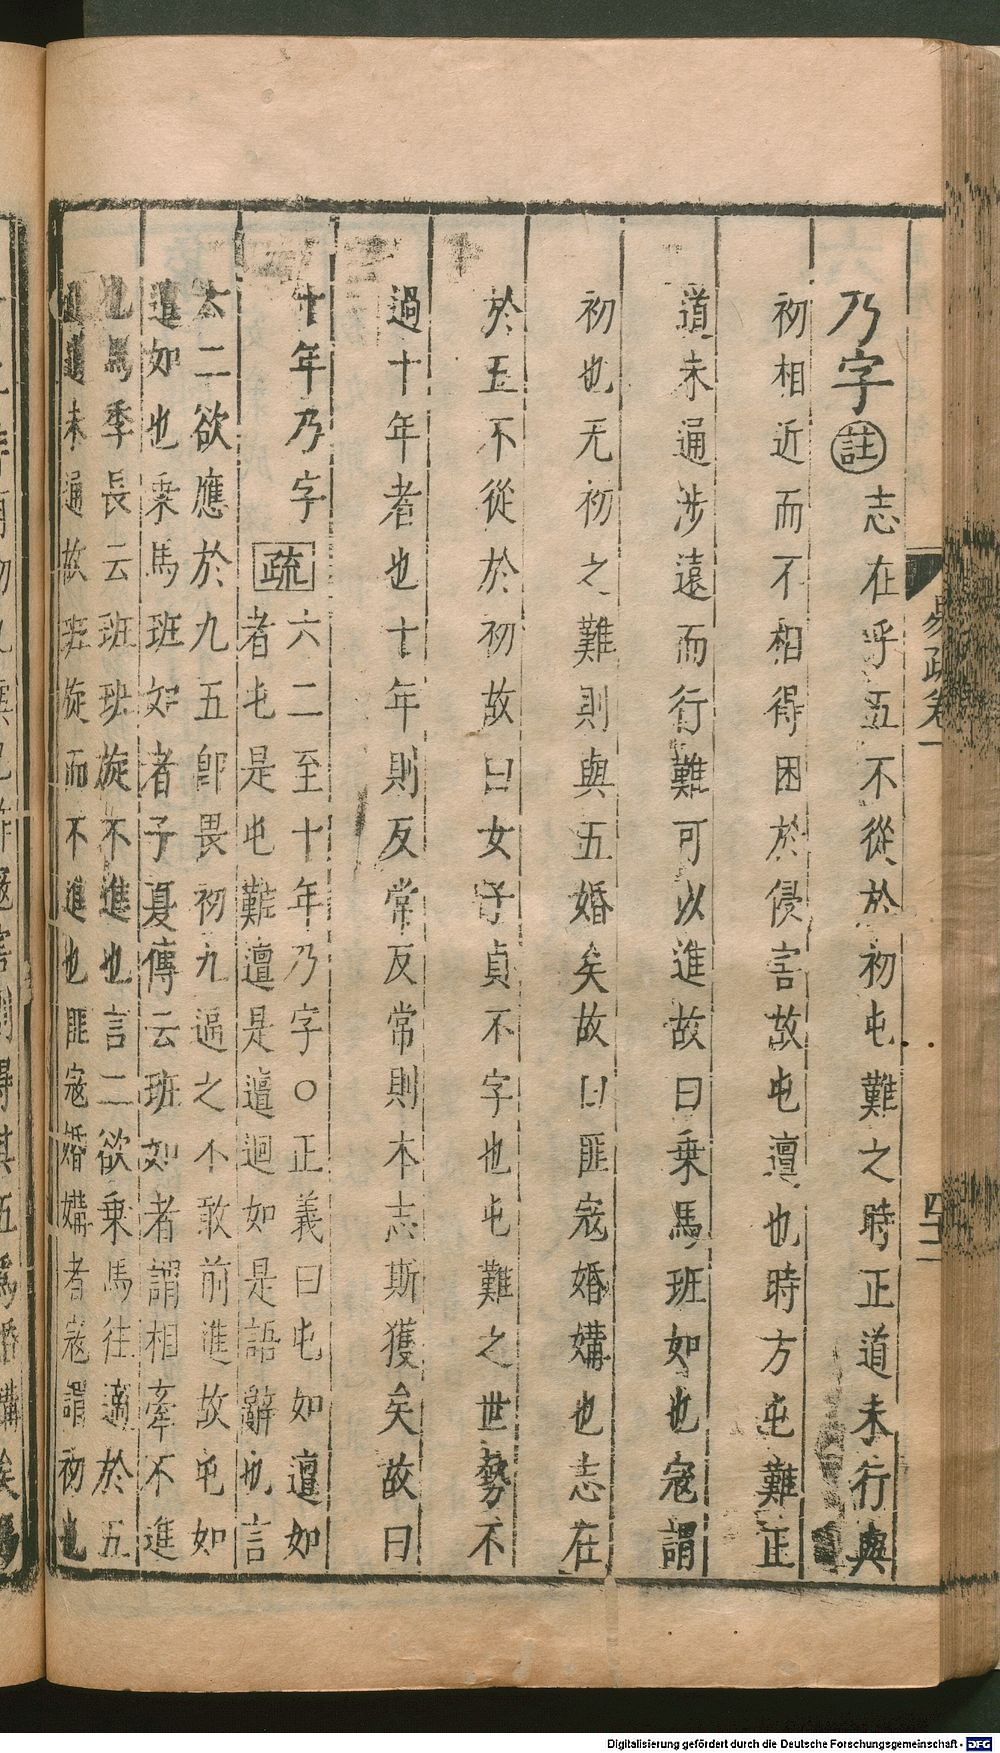 乃字註志在乎五不從於初屯難之時正道未行與
初相近而不相得困於侵害故屯邅也時方屯難正
道未通涉遠而行難可以進故曰乗馬班如也寇謂
初也无初之難則與五婚矣故曰匪寇婚媾也志在
於五不從於初故曰女子貞不字也屯難之世勢不
過十年者也十年則反常反常則本志斯獲矣故曰
十年乃字疏六二至十年乃字○正義曰屯如邅如
者屯是屯難邅是邅迴如是語辭也言
六二欲應於九五卽畏初九逼之不敢前進故屯如
邅如也乗馬班如者子夏傳云班如者謂相牽不進
也馬季長云班班旋不進也言二欲乗馬往適於五
正道未通故班旋而不進也匪寇婚媾者寇謂初也
易疏卷一
四十二
Digitalisierung gefördert durch die Deutsche Forschungsgemeinschaft - DFG